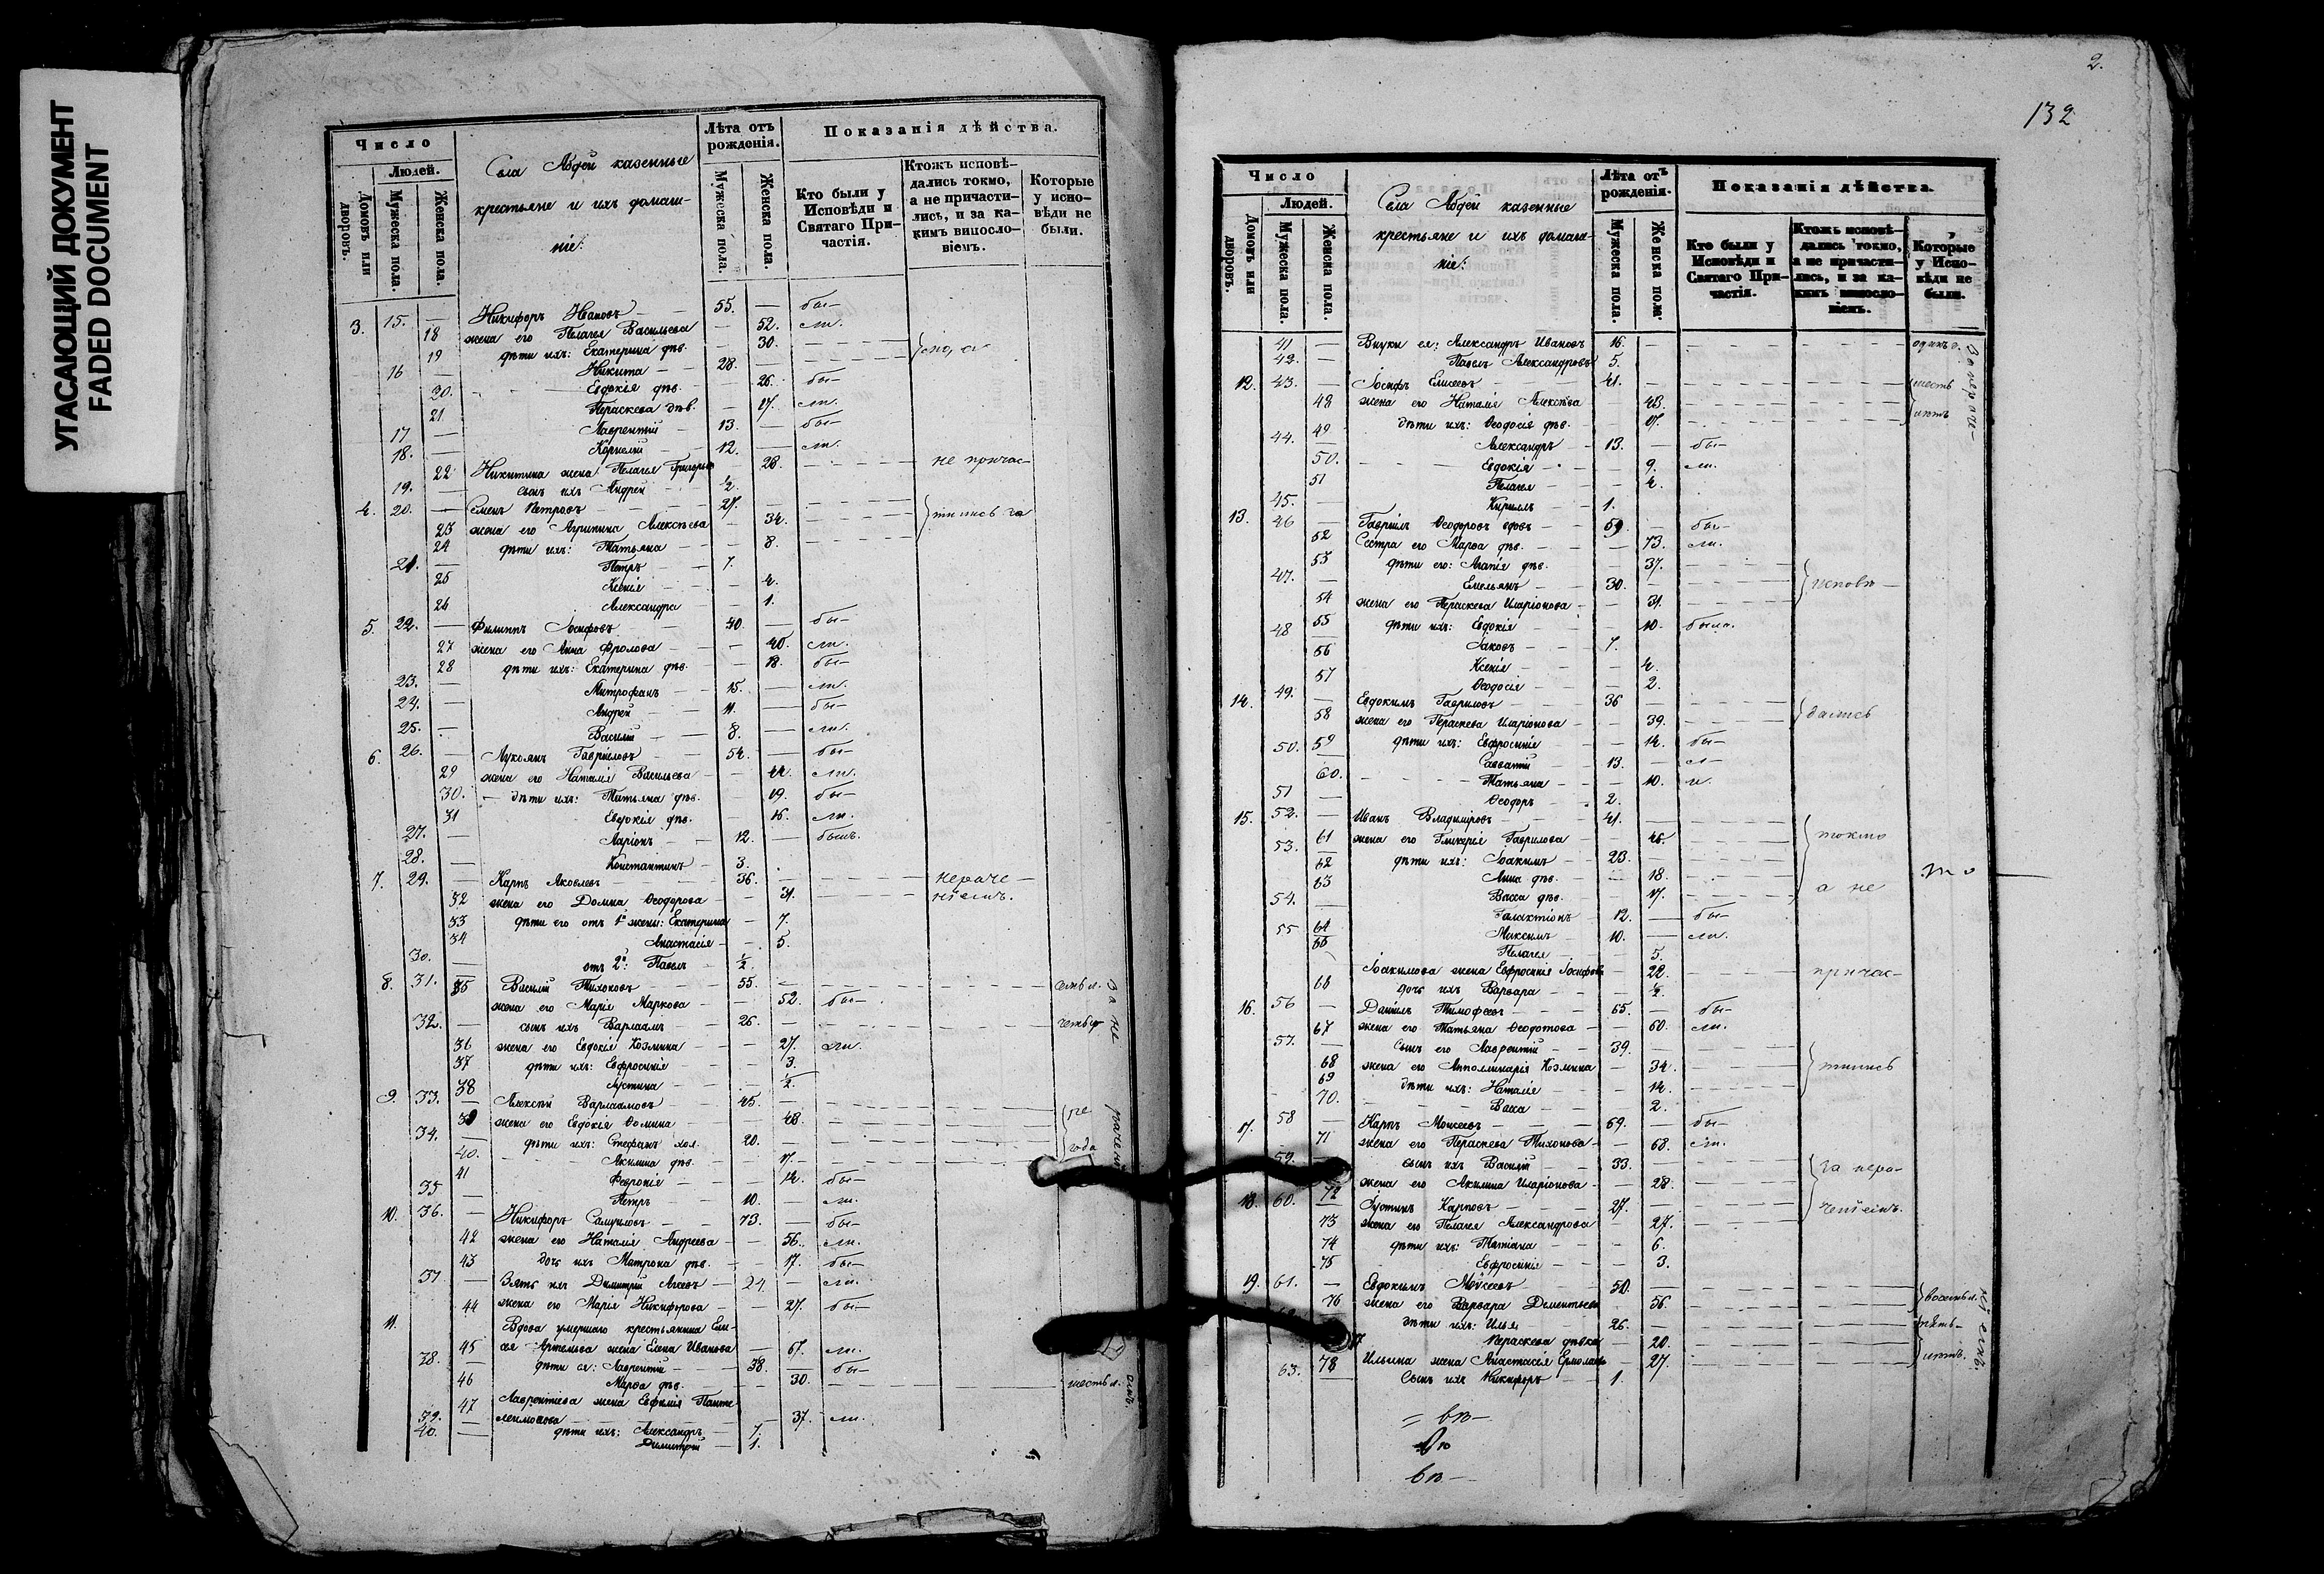 УГАСАЮЩИЙ ДОКУМЕНТ
FADED DOCUMENT
Число
Людей.
Домовъ или дворовъ.
Мужеска пола.
Женска пола.
Села Абдей казенные
крестьяне и ихъ домаш-
ніе:
Лѣта отъ рожденія.
Мужеска пола.
Женска пола.
Показанія дѣйства.
Кто были у Исповѣди и Святаго При-частія.
Ктожъ исповѣ-дались токмо, а не причасти-лись, и за ка-кимъ виносло-віемъ.
Которые у испо-вѣди не были.
3. 15. — Никифоръ Ивановъ — 55. — бы-
18 жена его Пелагея Васильева — 52. ли.
19 дѣти ихъ: Екатерина дѣв. — 30.
16 — Никита — 28.
20. Евдокія дѣв. — 26. бы-
21 Параскева дѣв. — 17. ли.
17 — Лаврентій — 13. — бы-
18. — Корнелій — 12. — ли.
22 Никитина жена Пелагея — 28 не причас-
19. — сынъ ихъ Андрей — ½.
4. 20. — Семенъ Петровъ — 27.
23 жена его Агрипина Алексѣева — 34. тились за
24 дѣти ихъ: Татьяна — 8.
21. — Петръ — 7.
25 Ксенія — 4.
26 Александра — 1.
5. 22. — Филиппъ Іосифовъ — 40. — бы-
27 жена его Анна Фролова — 40. ли.
28 дѣти ихъ: Екатерина дѣв. — 18. бы-
23. — Митрофанъ — 15. — ли.
24. — Андрей — 11. — бы-
25. — Василій — 8. — ли.
6. 26. — Лукіянъ Гавріиловъ — 54. — бы-
29 жена его Наталія Васильева — 44. ли.
30. дѣти ихъ: Татьяна дѣв. — 19. бы-
31 Евдокія дѣв. — 16. ли.
27. — Ларіонъ — 12. — былъ.
28. — Константинъ — 3.
7. 29. — Карпъ Яковлевъ — 36. нераче-
32 жена его Домна Ѳеодорова — 31. ніемъ.
33 дѣти его отъ 1й жены: Екатерина — 7.
34 Анастасія — 5.
30. — отъ 2й: Павелъ — ½.
8. 31. 35 Василій Тихоновъ — 55.
жена его Марія Маркова — 52. бы-
32. — сынъ ихъ Варлаамъ — 26.
36 жена его Евдокія Козмина — 27. ли.
37 дѣти ихъ: Евфросинія — 3.
38 Іустина — ½.
9. 33. — Алексѣй Варлаамовъ — 45.
39 жена его Евдокія Ѳомина — 48.
34. — дѣти ихъ: Стефанъ хол. 20. года
40. Акилина дѣв. — 17.
41 Февронія — 14. бы-
35 — Петръ — 10. — ли.
10. 36. — Никифоръ Самуиловъ — 73. — бы-
42 жена его Наталія Андреева — 56. ли.
43 дочь ихъ Матрона дѣв. — 17. бы-
37 — Зять ихъ Димитрій — 24. — ли.
44 жена его Марія Никифорова — 27. бы-
11. Вдова умершаго крестьянина Ели-
45 жена Елена Иванова — 67. ли.
38. — дѣти ея: Лаврентій — 38. — бы-
46 Марѳа дѣв. — 30. шесть л.
47 Лаврентіева жена Евфимія Панте-
39. — леимонова — 37. ли.
40. — дѣти ихъ: Александръ — 7.
Димитрій — 1.
2.
132
Число
Людей.
Домовъ или дворовъ.
Мужеска пола.
Женска пола.
Села Абдей казенные
крестьяне и ихъ домаш-
ніе:
Лѣта отъ рожденія.
Мужеска пола.
Женска пола.
Показанія дѣйства.
Кто были у Исповѣди и Святаго При-частія.
Ктожъ исповѣ-дались токмо, а не причасти-лись, и за ка-кимъ виносло-віемъ.
Которые у Испо-вѣди не были.
41 — Внуки ея: Александръ Ивановъ 16.
42. — Павелъ Александровъ 5.
12. 43. — Іосифъ Елисеевъ — 41. шесть
48 жена его Наталія Алексѣева — 43.
49 дѣти ихъ: Ѳеодосія дѣв. — 17.
44. — Александръ — 13. — бы-
50. Евдокія — 9. ли.
51 Пелагея — 4.
45. — Кириллъ — 1.
13. 46 — Гавріилъ Ѳеодоровъ вдовъ — 59. — бы-
52 Сестра его Марѳа дѣв. — 73. ли.
53 дѣти его: Агапія дѣв. — 37.
47. — Емельянъ — 30. исповѣ-
54 жена его Параскева Иларіонова — 31.
55 дѣти ихъ: Евдокія — 10. была.
48 — Іаковъ — 7.
56 Ксенія — 4.
57 Ѳеодосія — 2.
14. 49. — Евдокимъ Гавриловъ — 36 дались
58 жена его Параскева Иларіонова — 39.
59 дѣти ихъ: Евфросинія — 14. бы-
50. — Савватій — 13. — л-
60. Татьяна — 10. и.
51 — Ѳеодоръ — 2.
15. 52. — Иванъ Владиміровъ — 41. токмо
61 жена его Гликерія Гаврилова — 46.
53. дѣти ихъ: Іоакимъ — 23.
62 Анна дѣв. — 18. а не
63 Васса дѣв. — 17.
54. — Галактіонъ — 12. — бы-
55 64 Максимъ — 10. — ли.
65 Пелагея — 5.
Іоакимова жена Евфросинія — 22. причас-
66 дочь ихъ Варвара — ½.
16. 56 — Даніилъ Тимофеевъ — 65. — бы-
67 жена его Татьяна Ѳеодотова — 60. ли.
57. — сынъ его Лаврентій — 39.
68 жена его Апполинарія Козмина — 34. тились
69 дѣти ихъ: Наталія — 14.
70. Васса — 2.
17. 58 — Карпъ Моисеевъ — 69. — бы-
71 жена его Параскева Тихонова — 68. ли.
59. — сынъ ихъ Василій — 33. за нера-
72 жена его Акилина Иларіонова — 28.
18. 60. — Іустинъ Карповъ — 27. ченіемъ.
73 жена его Пелагея Александрова — 27.
74 дѣти ихъ: Татіана — 6.
75 Евфросинія — 3.
19. 61. — Евдокимъ Моѵсеевъ — 50.
76 жена его Варвара Дементьева — 56.
дѣти ихъ: Илья — 26.
Параскева дѣвка — 20.
78 Ильина жена Анастасія — 27.
63. Сынъ ихъ Никифоръ — 1.